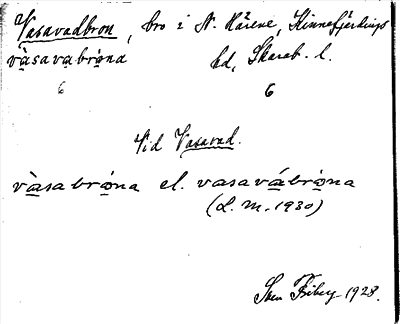 Vasavadbron, bro i N. Härene, Kinnefjärdings
vàsavabrȯ́na hd, Skarab. l.
6 6
Vid Vasavad.
vàsabrȯ́na el. vasavábrȯ̀na
(L. M. 1930)
Sven Friberg 1928.